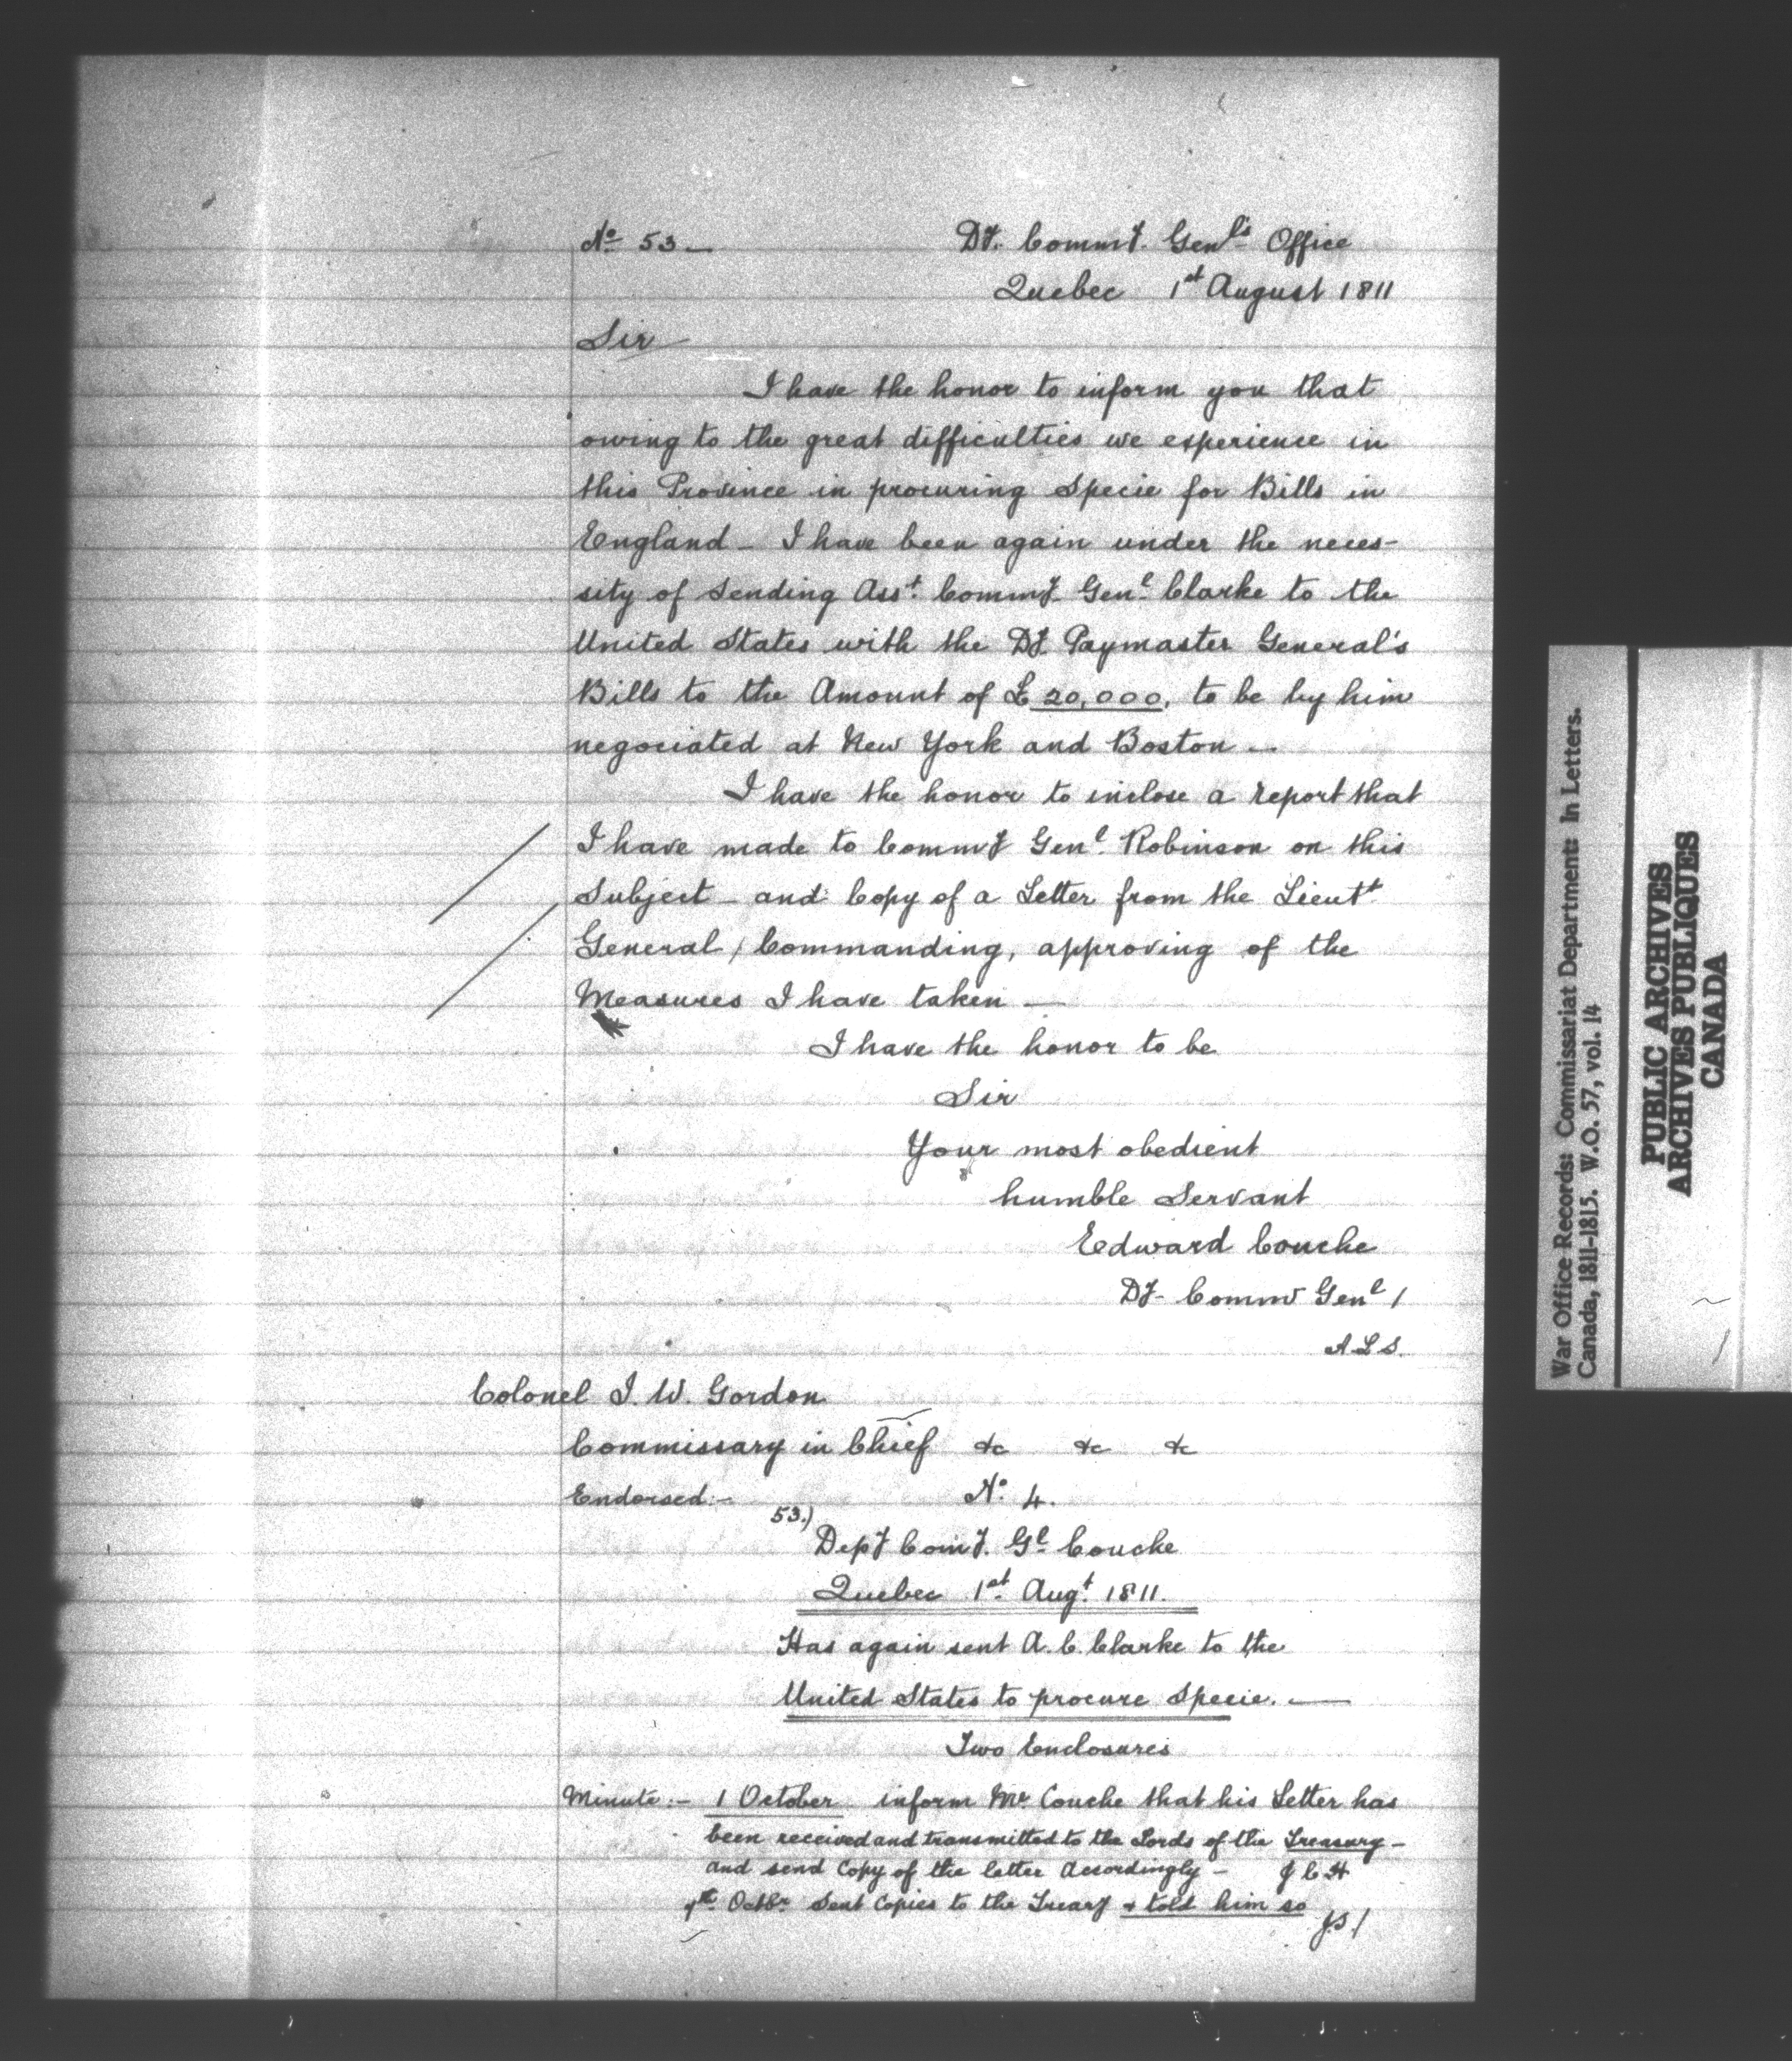 No 53 —
Dy. Commy. Genl's Office
Quebec 1st August 1811
Sir
I have the honor to inform you that
owing to the great difficulties we experience in
this Province in procuring Specie for Bills in
England — I have been again under the neces-
sity of sending Asst. Commy. Genl. Clarke to the
United States with the Dy. Paymaster General's
Bills to the Amount of £20,000, to be by him
negociated at New York and Boston —
I have the honor to inclose a report that
I have made to Commy Genl. Robinson on this
Subject — and Copy of a Letter from the Lieutt.
General / Commanding, approving of the
Measures I have taken —
I have the honor to be
Sir
Your most obedient
humble Servant
Edward Couche
Dy- Commy Genl /
A L S.
Colonel J. W. Gordon
Commissary in Chief &c &c &c
Endorsed:- No. 4.
53.)
Depy Comy. Gl. Couche
Quebec 1st. Augt. 1811.
Has again sent A. C. Clarke to the
United States to procure Specie. —
Two Enclosures
Minute:- 1 October inform Mr. Couche that his Letter has
been received and transmitted to the Lords of the Treasury —
and send Copy of the letter accordingly — J C H
Octbr. Sent Copies to the Treasy & told him so
War Office Records: Commissariat Department: In Letters.
Canada, 1811-1815. W.O. 57, vol. 14
PUBLIC ARCHIVES
ARCHIVES PUBLIQUES
CANADA